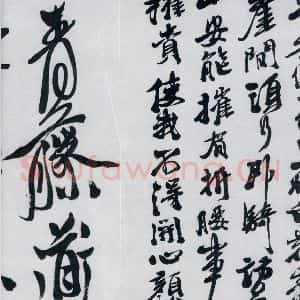 崖間須行即騎訪
山安能摧眉折腰事
權貴使我不得開心顏
青藤道
Shufawang.cn